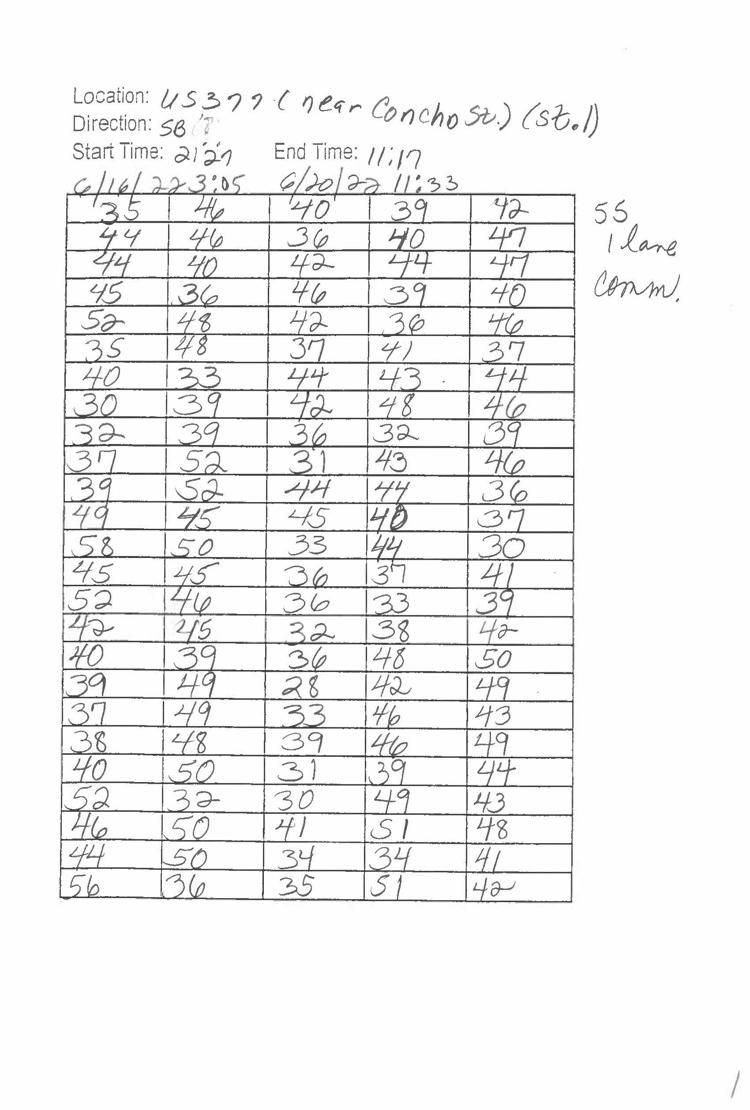 Location: US377 (near Concho St.) (St.1)
Direction: SB
Start Time: 2:27 End Time: 11:17
6/16/22 3:05 6/20/22 11:33
35 46 40 39 42
44 46 36 40 47
44 40 42 44 47
45 36 46 39 40
52 48 42 36 46
35 48 37 41 37
40 33 44 43 44
30 39 42 48 46
32 39 36 32 39
37 52 31 43 46
39 52 44 44 36
49 45 45 40 37
58 50 33 44 30
45 45 36 37 41
52 46 36 33 39
42 45 32 38 42
40 39 36 48 50
39 49 28 42 49
37 49 33 46 43
38 48 39 46 49
40 50 31 39 44
52 32 30 49 43
46 50 41 51 48
44 50 34 34 41
56 36 35 51 42
55
1 lane
Comm.
1